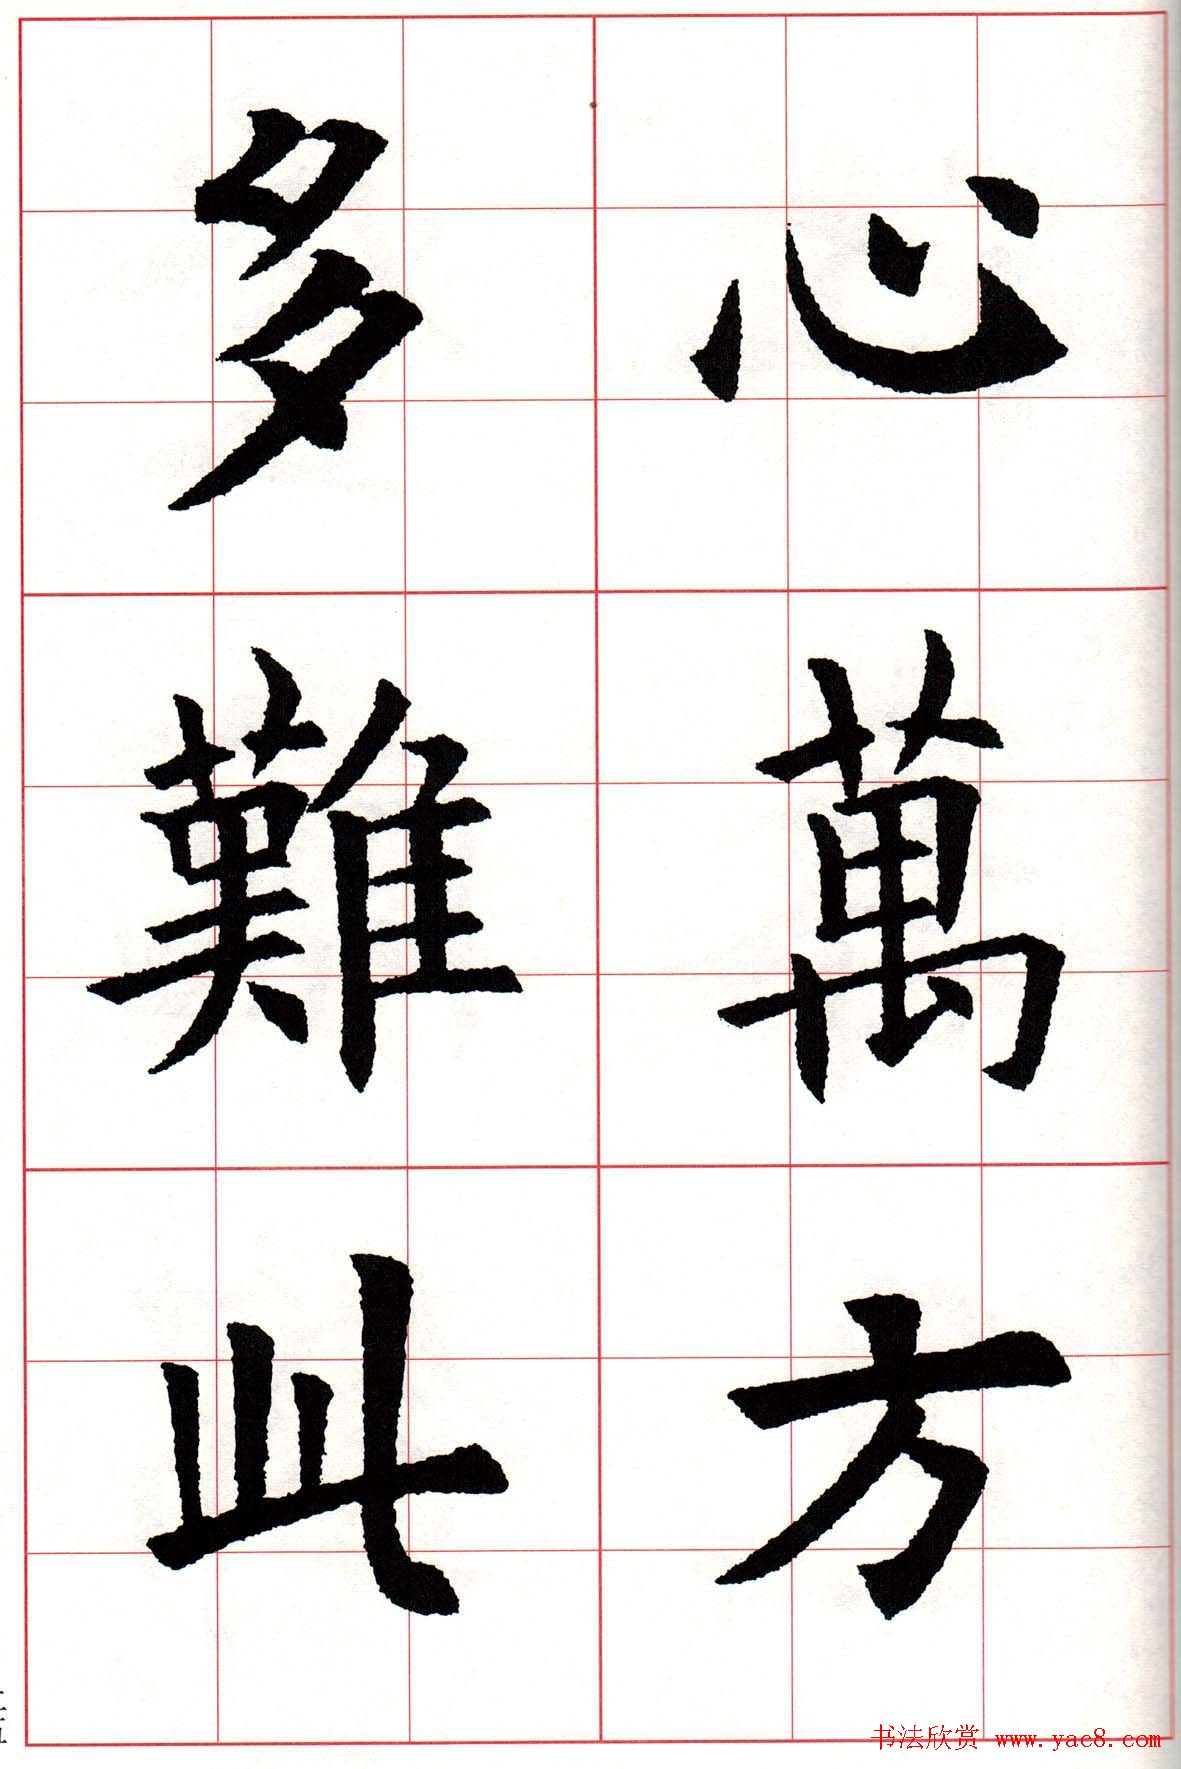 心萬方
多難此
书法欣赏 www.yac8.com